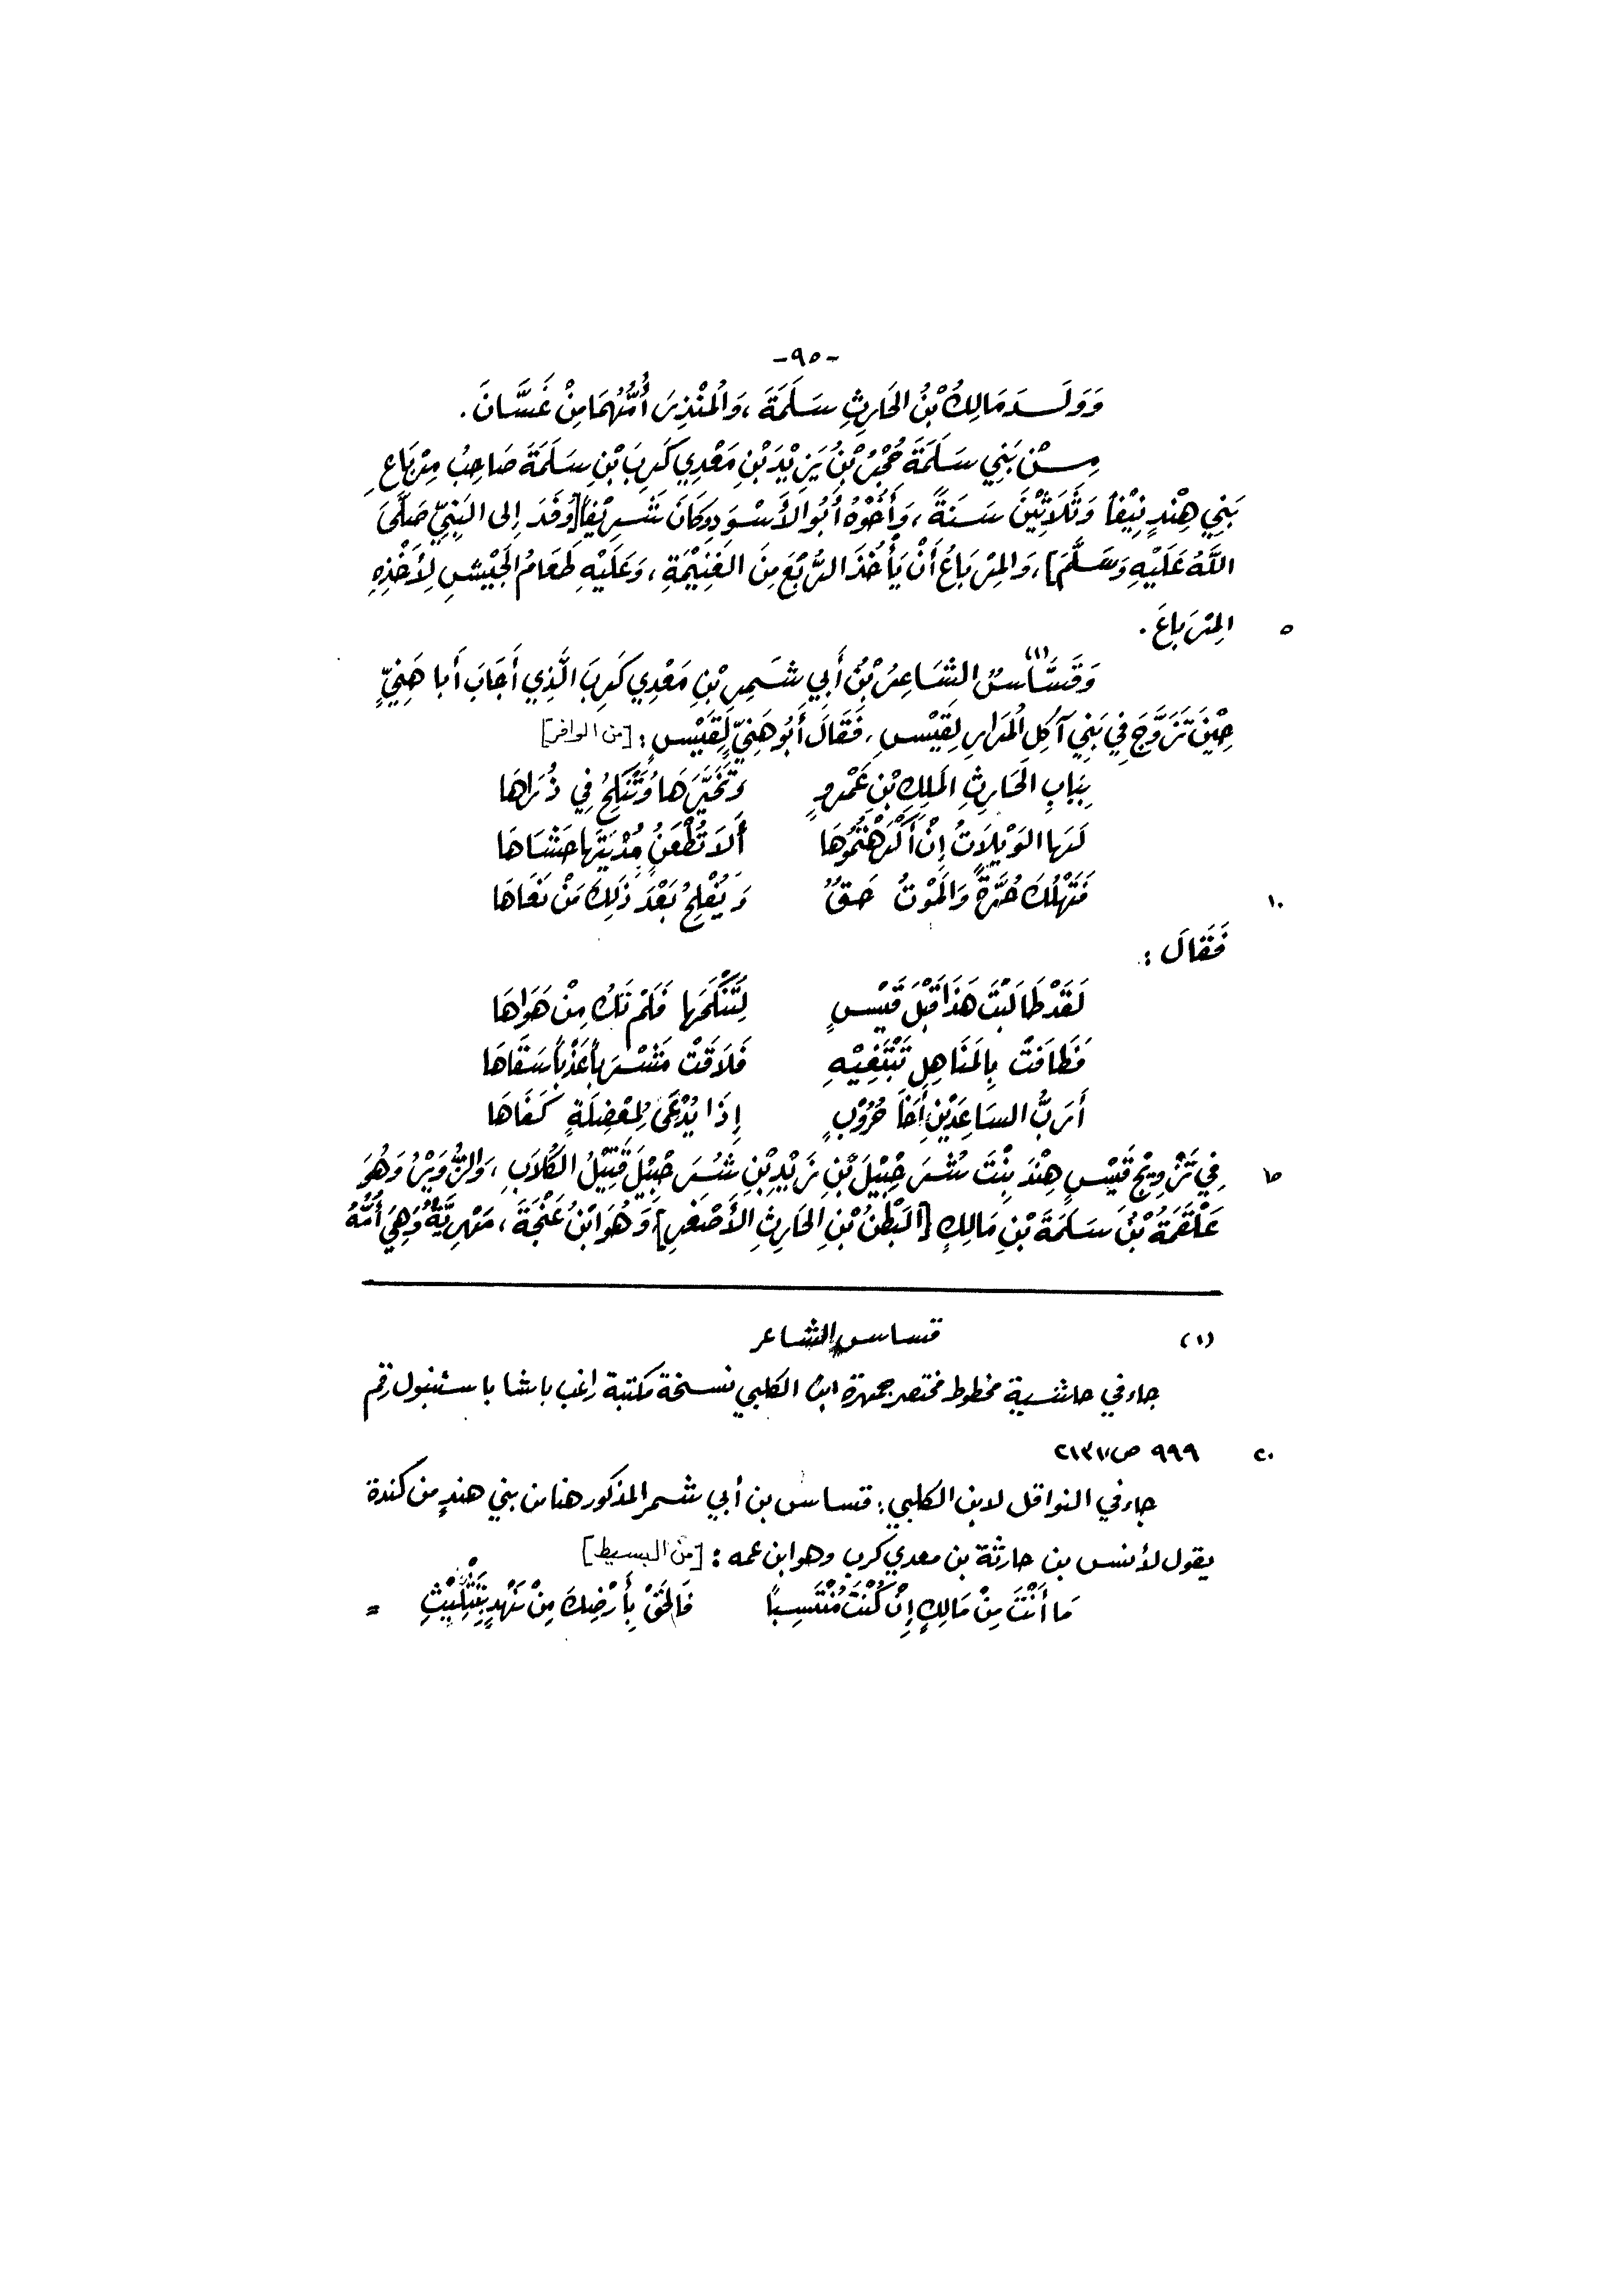 -٩٥-
وَوَلَــدَ مَالِكُ بْنُ الحَارِثِ سَلَمَةَ ، وَالمُنْذِرَ أُمُّهُمَا مِنْ غَسَّانَ .
مِــنْ بَنِي سَلَمَةَ حُجْرُ بْنُ يَزِيْدَ بْنِ مَعْدِي كَرِبَ بْنِ سَلَمَةَ صَاحِبُ مِرْبَاعِ
بَنِي هِنْدٍ نَيْفاً وَثَلَاثِيْنَ سَنَةً ، وَأَخُوْهُ أَبُو الأَسْوَدِ وَكَانَ شَرِيْفاً [وَفَدَ إلى النَبِيِّ صَلَّى
اللَّهُ عَلَيْهِ وَسَلَّمَ] ، وَالمِرْبَاعُ أَنْ يَأْخُذَ الرُّبْعَ مِنَ الغَنِيْمَةِ ، وَعَلَيْهِ طَعَامُ الجَيْشِ لِأَخْذِهِ
المِرْبَاعَ . ٥
وَقَسَّاسُ (١) الشَاعِرُ بْنُ أَبِي شَمِرِ بْنِ مَعْدِي كَرِبَ الَّذِي أَجَابَ أَبا هَنِيٍّ
حِيْنَ تَزَوَّجَ فِي بَنِي آكِلِ المُرَارِ لِقَيْسٍ ، فَقَالَ أَبُو هَنِيٍّ لِقَيْسٍ : [من الوافر]
بِبَابِ الحَارِثِ المَلِكِ بْنِ عَمْرٍو وَتَخَيَّرَهَا وَتُنْكَحُ فِي ذُرَاهَا
لَهَا الوَيْلَاتُ إِنْ أَكْرَهْتُمُوْهَا أَلَا تُطْعَنُ مُدْيَتُهَا حَشَاهَا
فَتَهْلُكَ حُرَّةً وَالمَوْتُ حَقٌّ وَيُفْلِحُ بَعْدَ ذَلِكَ مَنْ نَعَاهَا ١٠
فَقَالَ :
لَقَدْ طَالَبْتَ هَذَا قَبْلَ قَيْسٍ لِتَنْكَحَهَا فَلَمْ تَكُ مِنْ هَوَاهَا
فَطَافَتْ بِالمَنَاهِلِ تَبْتَغِيْهِ فَلَاقَتْ مَشْرَباً عَذْباً سَقَاهَا
أَرَبُّ السَاعِدَيْنِ أَخَا حُرُوْبٍ إِذَا يُدْعَى لِمُعْضِلَةٍ كَفَاهَا
فِي تَزْوِيْجِ قَيْسٍ هِنْدَ بِنْتَ شُرَحْبِيْلَ بْنِ زَيْدِ بْنِ شُرَحْبِيْلَ قَتِيْلُ الكُلَابِ ، وَالزُّوَيْرُ وَهُوَ ١٥
عَلْقَمَةُ بْنُ سَلَمَةَ بْنِ مَالِكٍ [البَطْنُ بْنِ الحَارِثِ الأَصْغَرِ] وَهُوَ ابْنُ عَنْجَةَ ، مَهْرِيَّةٌ وَهِيَ أُمُّهُ
(١) قساس الشاعر
جاء في حاشية مخطوط مختصر جمهرة ابن الكلبي نسخة مكتبة راغب باشا باستنبول رقم
٩٩٩ ص ٢١٣ ٢٠
جاء في النواقل لابن الكلبي : قساس بن أبي شمر المذكور هنا من بني هندٍ من كندة
يقول لأنس بن حارثة بن معدي كرب وهو ابن عمه : [من البسيط]
مَا أَنْتَ مِنْ مَالِكٍ إِنْ كُنْتَ مُنْتَسِباً فَالحَقْ بِأَرْضِكَ مِنْ نَهْدٍ بِتَثْلِيْثِ =